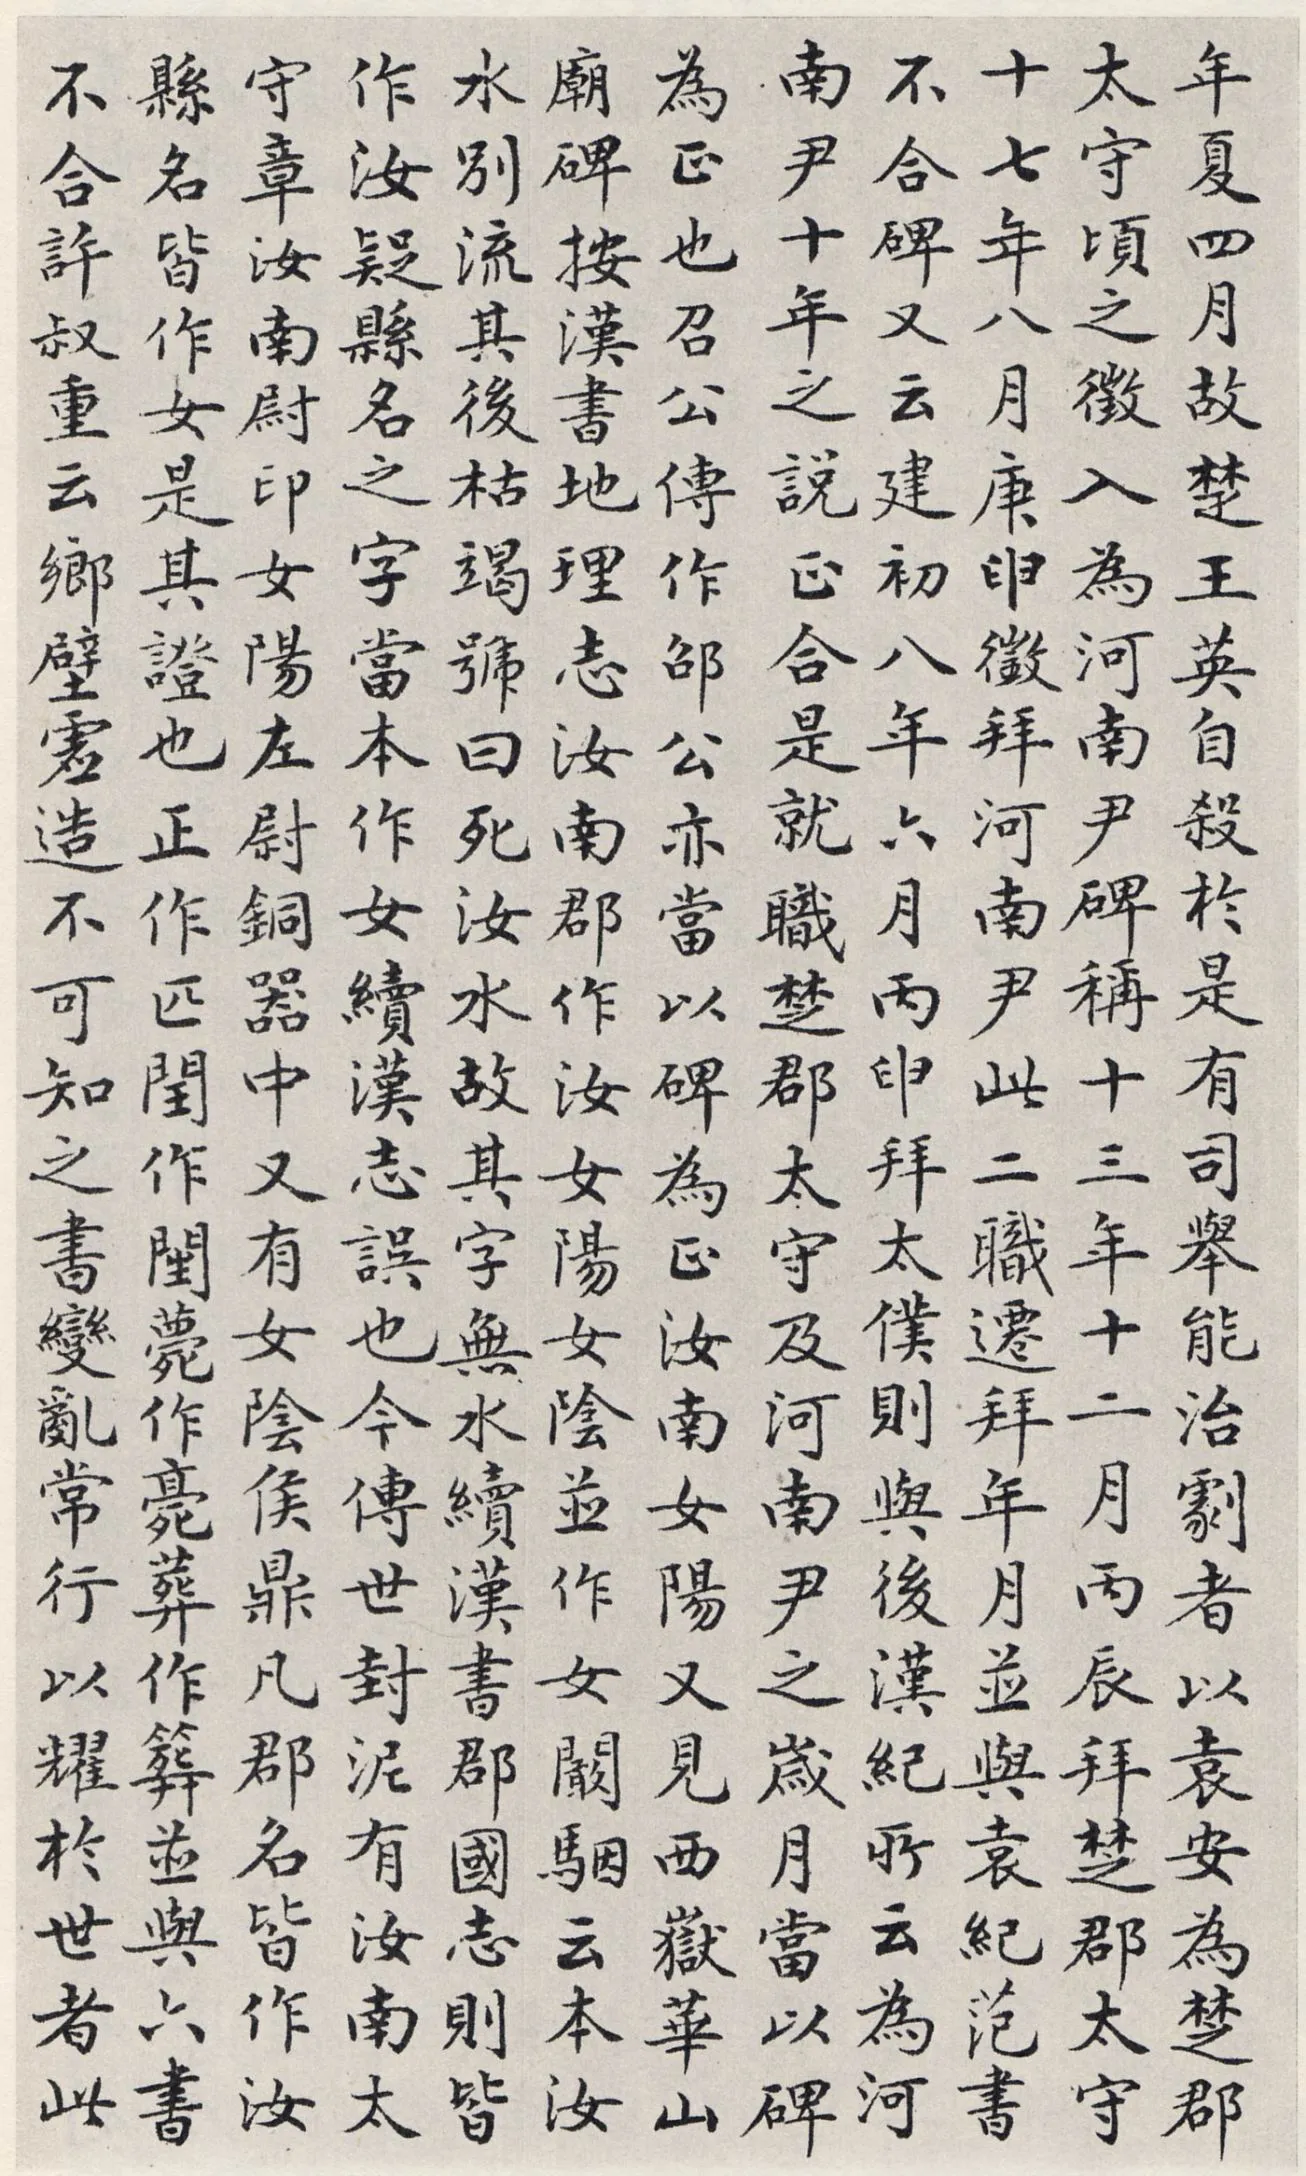 年夏四月故楚王英自殺於是有司舉能治劇者以袁安為楚郡
太守頃之徵入為河南尹碑稱十三年十二月丙辰拜楚郡太守
十七年八月庚申徵拜河南尹此二職遷拜年月並與袁紀范書
不合碑又云建初八年六月丙申拜太僕則與後漢紀所云為河
南尹十年之説正合是就職楚郡太守及河南尹之歲月當以碑
為正也召公傳作邵公亦當以碑為正汝南女陽又見西嶽華山
廟碑按漢書地理志汝南郡作汝女陽女陰並作女闞駰云本汝
水別流其後枯竭號曰死汝水故其字無水續漢書郡國志則皆
作汝疑縣名之字當本作女續漢志誤也今傳世封泥有汝南太
守章汝南尉印女陽左尉銅器中又有女陰侯鼎凡郡名皆作汝
縣名皆作女是其證也正作匹閏作閨薨作薧葬作篿並與六書
不合許叔重云鄉壁虛造不可知之書變亂常行以耀於世者此